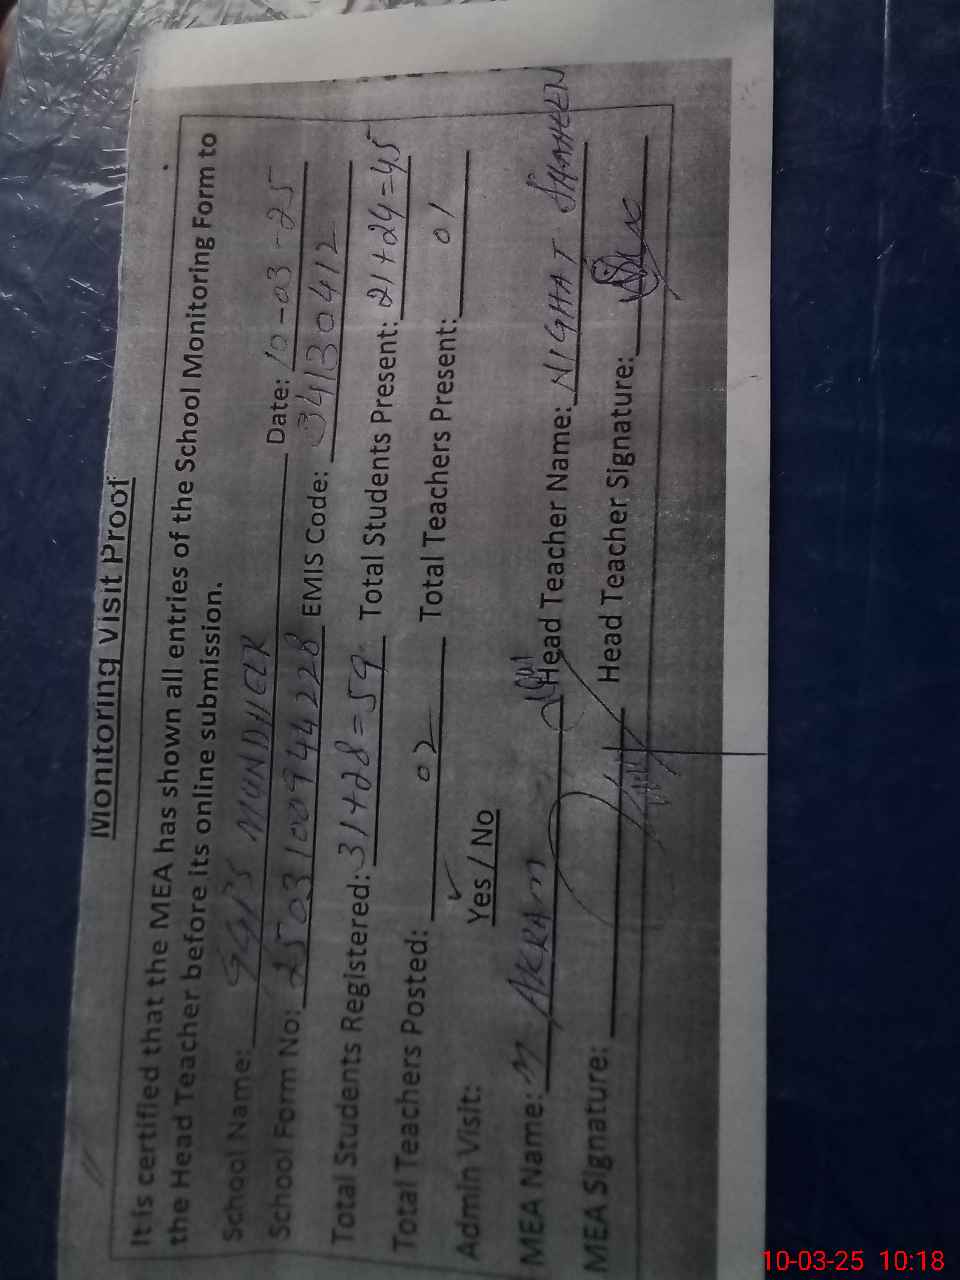 Monitoring Visit Proof
It is certified that the MEA has shown all entries of the School Monitoring Form to
the Head Teacher before its online submission.
School Name: GGPS MUNDHEER Date: 10-03-25
School Form No: 2503100944228 EMIS Code: 34130412
Total Students Registered: 31+28=59 Total Students Present: 21+24=45
Total Teachers Posted: 02 Total Teachers Present: 01
Admin Visit: Yes / No
MEA Name: M AKRAM Head Teacher Name: NIGHAT SHAHEEN
MEA Signature: Head Teacher Signature:
10-03-25 10:18